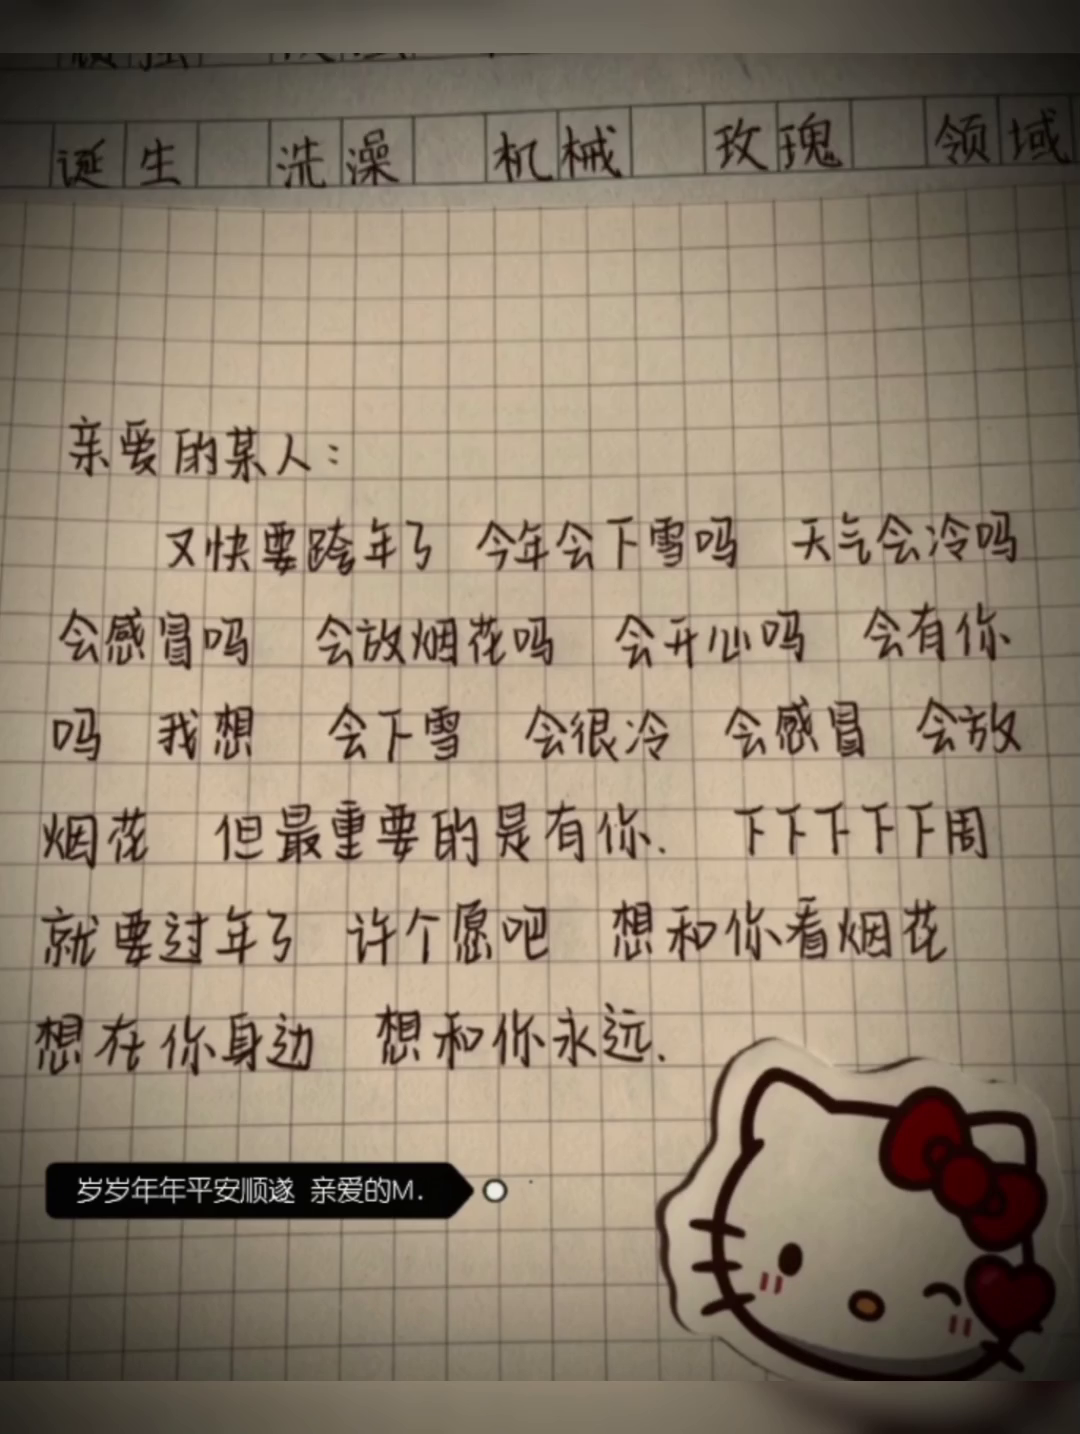 诞生 洗澡 机械 玫瑰 领域
亲爱的某人：
又快要跨年了 今年会下雪吗 天气会冷吗
会感冒吗 会放烟花吗 会开心吗 会有你
吗 我想 会下雪 会很冷 会感冒 会放
烟花 但最重要的是有你. 下下下下下周
就要过年了 许个愿吧 想和你看烟花
想在你身边 想和你永远.
岁岁年年平安顺遂 亲爱的M.